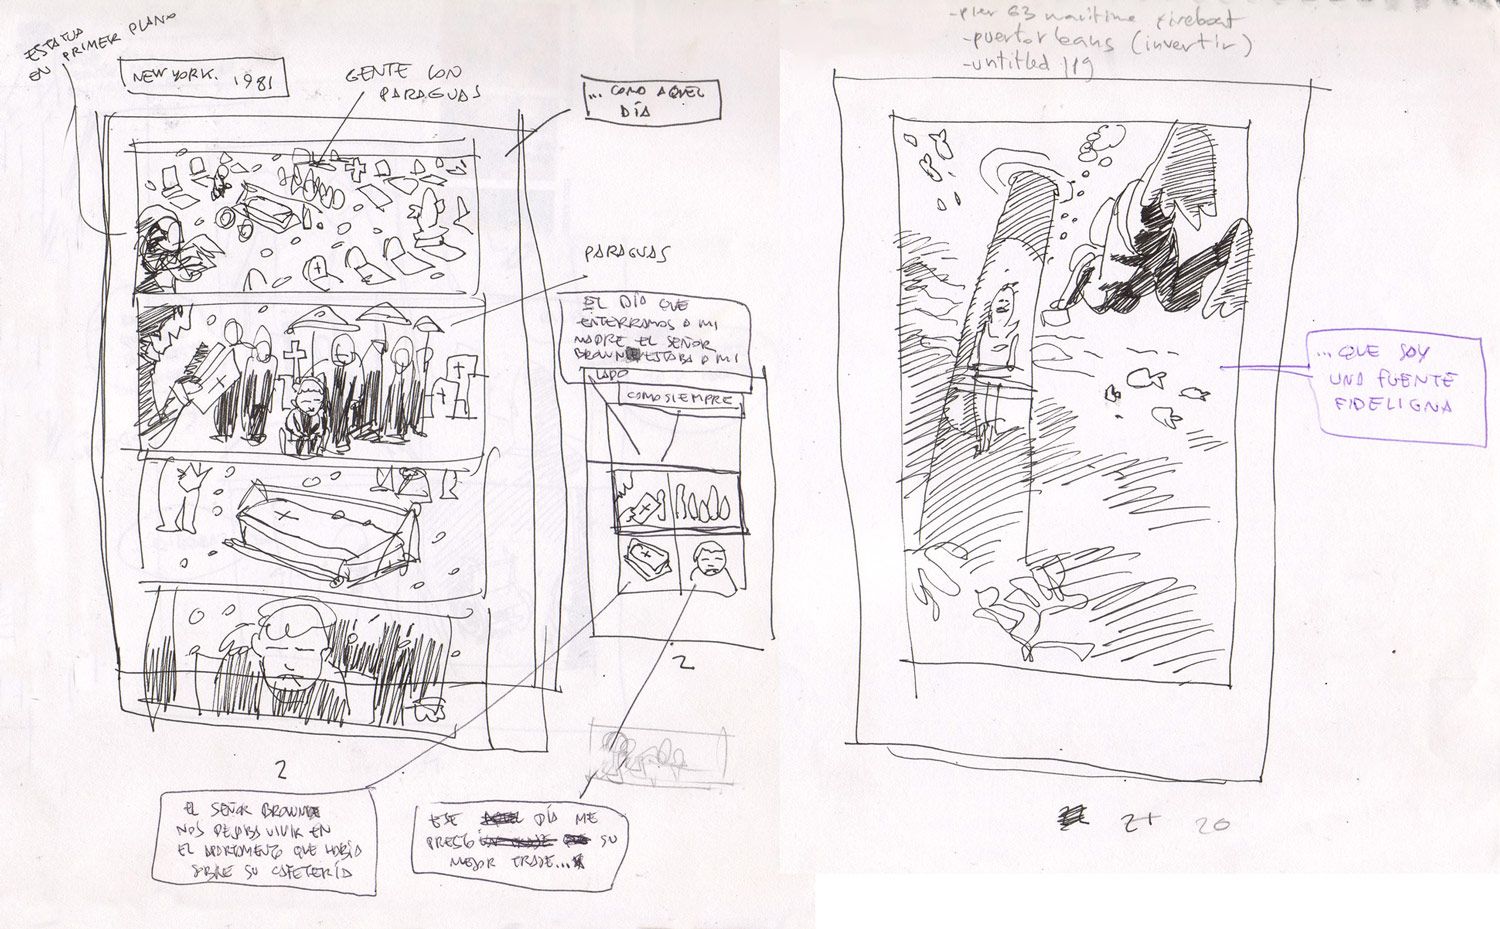 ESTATUA
EN PRIMER PLANO
NEW YORK. 1981
GENTE CON
PARAGUAS
... COMO AQUEL
DÍA
PARAGUAS
EL DÍA QUE
ENTERRAMOS A MI
MADRE EL SEÑOR
BROWN ESTABA A MI
LADO
COMO SIEMPRE
2
2
EL SEÑOR BROWN
NOS DEJABA VIVIR EN
EL APARTAMENTO QUE HABÍA
SOBRE SU CAFETERÍA
ESE DÍA ME
PRESTÓ SU
MEJOR TRAJE...
-pier 63 maritime fireboat
-puertorleans (invertir)
-untitled
... QUE SOY
UNA FUENTE
FIDELIGNA
21 20